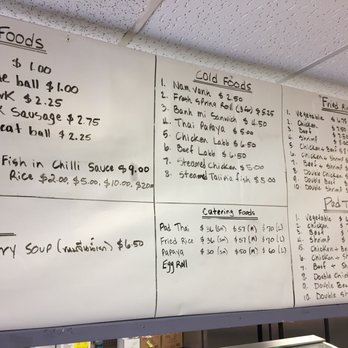 Foods
$ 1.00
ball $ 1.00
$ 2.25
Sausage $ 2.75
eat ball $ 2.25
Fish in Chilli Sauce $ 9.00
Rice $2.00, $5.00, $10.00, $20.00
Soup $ 6.50
Cold Foods
1. Nam Vanh $ 2.50
2. Fresh Spring Roll $ 5.25
3. Banh mi Sanwich $ 4.50
4. Thai Papaya $ 5.00
5. Chicken Labb $ 6.50
6. Beef Labb $ 6.50
7. Steamed Chicken $ 5.00
8. Steamed Fish $ 5.00
Catering Foods
Pad Thai $ 36 (Sm) $ 57 (M) $ 70 (L)
Fried Rice $ 36 (Sm) $ 57 (M) $ 70 (L)
Papaya $ 30 (Sm) $ 50 (M) $ 60 (L)
Egg Roll
Fried
1. Vegetable $ 6.75
2. Chicken
3. Beef
4. Shrimp
5. Chicken & Beef
6. Chicken & Shrimp
7. Beef & Shrimp
8. Double Chicken
9. Double Beef
10. Double Shrimp
Pad Th
1. Vegetable
2. Chicken
3. Beef
4. Shrimp
5. Chicken & Beef
6. Chicken &
7. Beef & Shr
8. Double Chic
9. Double Bee
10. Double Shr